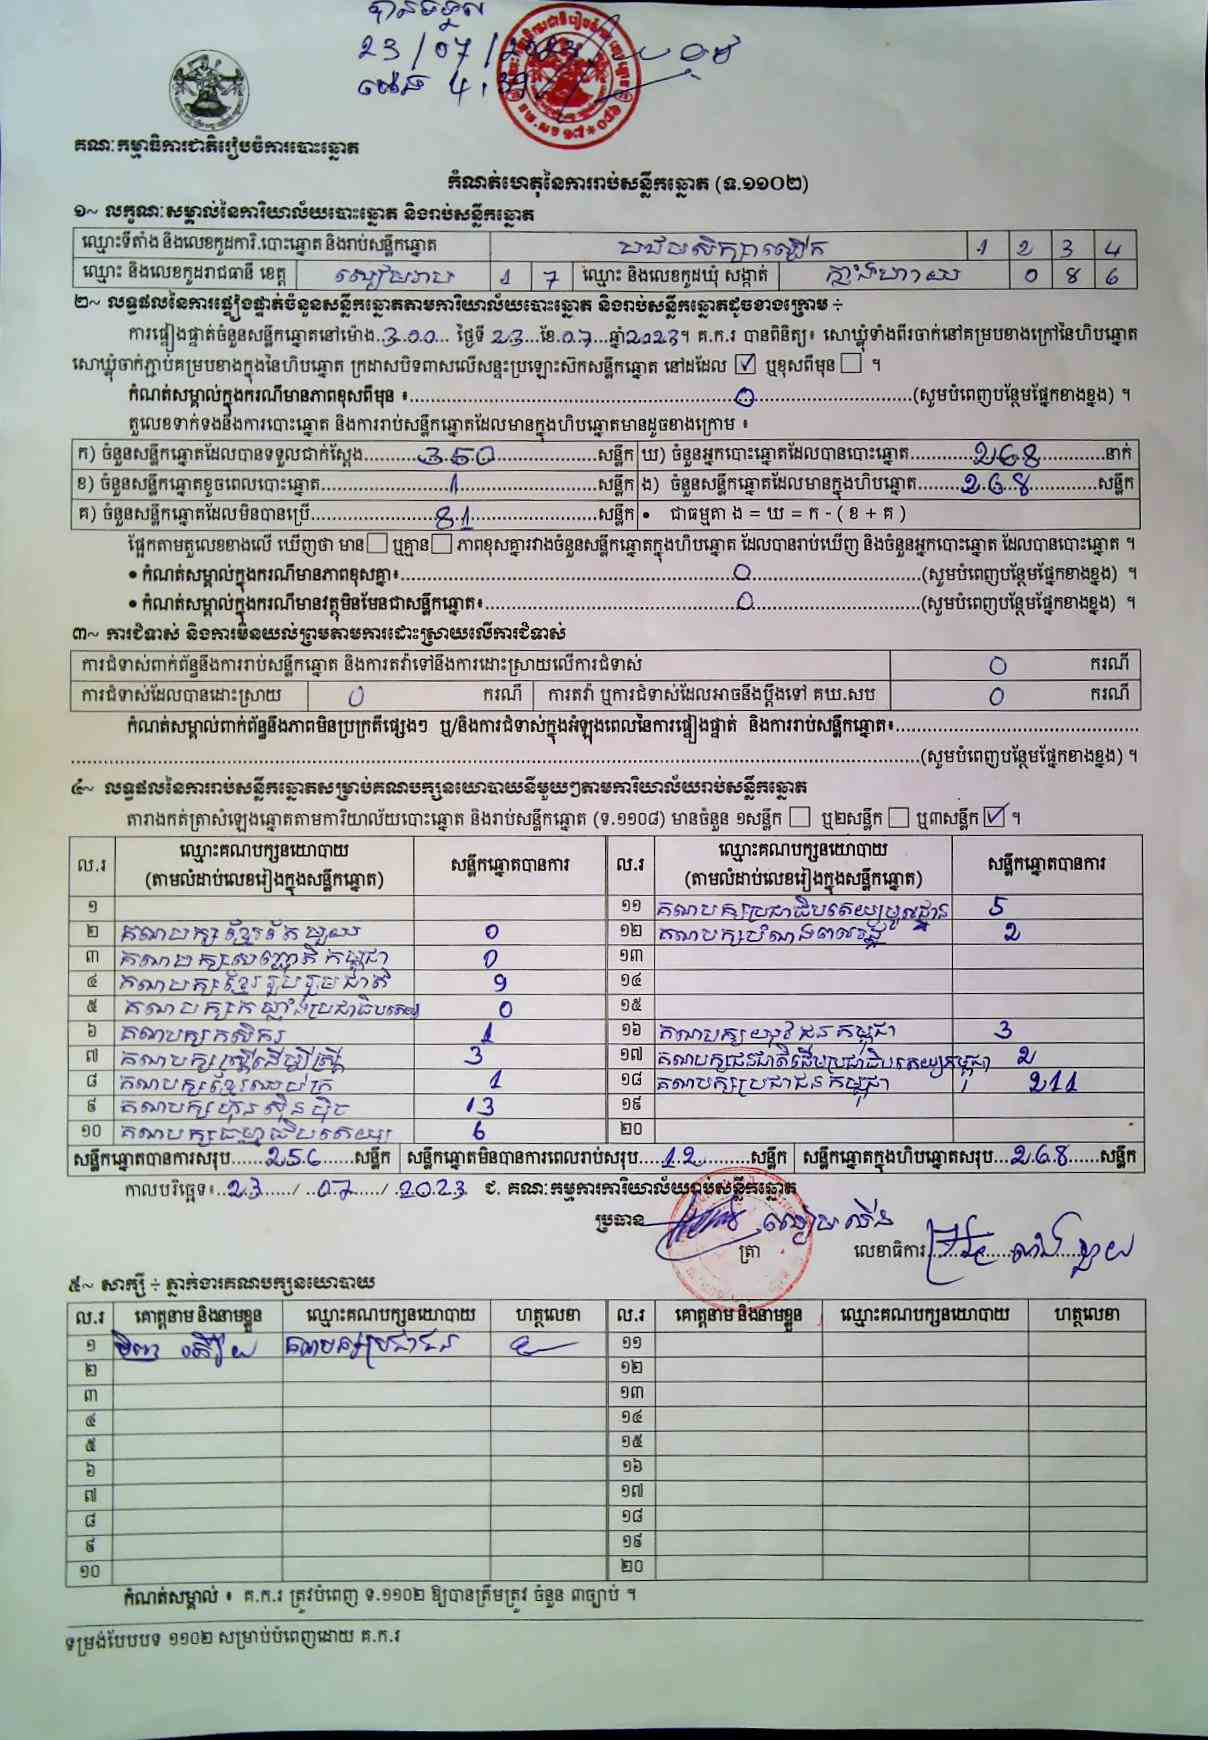 បានទទួល
23/07/2023
ម៉ោង 4:39
គណៈកម្មាធិការជាតិរៀបចំការបោះឆ្នោត
កំណត់ហេតុនៃការរាប់សន្លឹកឆ្នោត (ទ.១១០២)
១~ លក្ខណៈសម្គាល់នៃការិយាល័យបោះឆ្នោត និងរាប់សន្លឹកឆ្នោត
ឈ្មោះទីតាំង និងលេខកូដការិ.បោះឆ្នោត និងរាប់សន្លឹកឆ្នោត 1 2 3 4
ឈ្មោះ និងលេខកូដរាជធានី ខេត្ត សៀមរាប 1 7 ឈ្មោះ និងលេខកូដឃុំ សង្កាត់ ឃ្លាំងហាយ 0 8 6
២~ លទ្ធផលនៃការផ្ទៀងផ្ទាត់ចំនួនសន្លឹកឆ្នោតតាមការិយាល័យបោះឆ្នោត និងរាប់សន្លឹកឆ្នោតដូចខាងក្រោម ÷
ការផ្ទៀងផ្ទាត់ចំនួនសន្លឹកឆ្នោតនៅម៉ោង..3.00... ថ្ងៃទី 23...ខែ.07...ឆ្នាំ2023។ គ.ក.រ បានពិនិត្យ៖ សោឃ្លុំទាំងពីរចាក់នៅគម្របខាងក្រៅនៃហិបឆ្នោត
សោឃ្លុំចាក់ភ្ជាប់គម្របខាងក្នុងនៃហិបឆ្នោត ក្រដាសបិទពាសលើសន្ទះប្រឡោះស៊កសន្លឹកឆ្នោត នៅដដែល ☑ ឬខុសពីមុន ☐ ។
កំណត់សម្គាល់ក្នុងករណីមានភាពខុសពីមុន ៖...0...(សូមបំពេញបន្ថែមផ្នែកខាងខ្នង) ។
តួលេខទាក់ទងនឹងការបោះឆ្នោត និងការរាប់សន្លឹកឆ្នោតដែលមានក្នុងហិបឆ្នោតមានដូចខាងក្រោម ៖
ក) ចំនួនសន្លឹកឆ្នោតដែលបានទទួលជាក់ស្តែង...350...សន្លឹក ឃ) ចំនួនអ្នកបោះឆ្នោតដែលបានបោះឆ្នោត...268...នាក់
ខ) ចំនួនសន្លឹកឆ្នោតខូចពេលបោះឆ្នោត...1...សន្លឹក ង) ចំនួនសន្លឹកឆ្នោតដែលមានក្នុងហិបឆ្នោត...268...សន្លឹក
គ) ចំនួនសន្លឹកឆ្នោតដែលមិនបានប្រើ...81...សន្លឹក • ជាធម្មតា ង = ឃ = ក - ( ខ + គ )
ផ្អែកតាមតួលេខខាងលើ ឃើញថា មាន ☐ ឬគ្មាន ☐ ភាពខុសគ្នារវាងចំនួនសន្លឹកឆ្នោតក្នុងហិបឆ្នោត ដែលបានរាប់ឃើញ និងចំនួនអ្នកបោះឆ្នោត ដែលបានបោះឆ្នោត ។
• កំណត់សម្គាល់ក្នុងករណីមានភាពខុសគ្នា៖...0...(សូមបំពេញបន្ថែមផ្នែកខាងខ្នង) ។
• កំណត់សម្គាល់ក្នុងករណីមានវត្ថុមិនមែនជាសន្លឹកឆ្នោត៖...0...(សូមបំពេញបន្ថែមផ្នែកខាងខ្នង) ។
៣~ ការជំទាស់ និងការមិនយល់ព្រមតាមការដោះស្រាយលើការជំទាស់
ការជំទាស់ពាក់ព័ន្ធនឹងការរាប់សន្លឹកឆ្នោត និងការតវ៉ាទៅនឹងការដោះស្រាយលើការជំទាស់ 0 ករណី
ការជំទាស់ដែលបានដោះស្រាយ 0 ករណី ការតវ៉ា ឬការជំទាស់ដែលអាចនឹងប្តឹងទៅ គឃ.សប 0 ករណី
កំណត់សម្គាល់ពាក់ព័ន្ធនឹងភាពមិនប្រក្រតីផ្សេងៗ ឬ/និងការជំទាស់ក្នុងអំឡុងពេលនៃការផ្ទៀងផ្ទាត់ និងការរាប់សន្លឹកឆ្នោត៖...
...(សូមបំពេញបន្ថែមផ្នែកខាងខ្នង) ។
៤~ លទ្ធផលនៃការរាប់សន្លឹកឆ្នោតសម្រាប់គណបក្សនយោបាយនីមួយៗតាមការិយាល័យរាប់សន្លឹកឆ្នោត
តារាងកត់ត្រាសំឡេងឆ្នោតតាមការិយាល័យបោះឆ្នោត និងរាប់សន្លឹកឆ្នោត (ទ.១១០៨) មានចំនួន ១សន្លឹក ☐ ឬ២សន្លឹក ☐ ឬ៣សន្លឹក ☑ ។
ល.រ ឈ្មោះគណបក្សនយោបាយ (តាមលំដាប់លេខរៀងក្នុងសន្លឹកឆ្នោត) សន្លឹកឆ្នោតបានការ ល.រ ឈ្មោះគណបក្សនយោបាយ (តាមលំដាប់លេខរៀងក្នុងសន្លឹកឆ្នោត) សន្លឹកឆ្នោតបានការ
១ ១១ គណបក្សប្រជាធិបតេយ្យមូលដ្ឋាន 5
២ គណបក្សខ្មែរតែមួយ 0 ១២ គណបក្សបំណងពលរដ្ឋ 2
៣ គណបក្សសញ្ជាតិកម្ពុជា 0 ១៣
៤ គណបក្សខ្មែររួបរួមជាតិ 9 ១៤
៥ គណបក្សកម្លាំងប្រជាធិបតេយ្យ 0 ១៥
៦ គណបក្សកសិករ 1 ១៦ គណបក្សយុវជនកម្ពុជា 3
៧ គណបក្សស្ត្រីដើម្បីស្ត្រី 3 ១៧ គណបក្សជនជាតិដើមប្រជាធិបតេយ្យកម្ពុជា 2
៨ គណបក្សខ្មែរឈប់ក្រ 1 ១៨ គណបក្សប្រជាជនកម្ពុជា 211
៩ គណបក្សហ្វ៊ុនស៊ិនប៉ិច 13 ១៩
១០ គណបក្សធម្មាធិបតេយ្យ 6 ២០
សន្លឹកឆ្នោតបានការសរុប...256...សន្លឹក សន្លឹកឆ្នោតមិនបានការពេលរាប់សរុប...12...សន្លឹក សន្លឹកឆ្នោតក្នុងហិបឆ្នោតសរុប...268...សន្លឹក
កាលបរិច្ឆេទ៖..23..../ ..07..../ .2023 ជ. គណៈកម្មការការិយាល័យរាប់សន្លឹកឆ្នោត
ប្រធាន
ត្រា លេខាធិការ
៥~ សាក្សី ÷ ភ្នាក់ងារគណបក្សនយោបាយ
ល.រ គោត្តនាម និងនាមខ្លួន ឈ្មោះគណបក្សនយោបាយ ហត្ថលេខា ល.រ គោត្តនាម និងនាមខ្លួន ឈ្មោះគណបក្សនយោបាយ ហត្ថលេខា
១ គណបក្សប្រជាជន ១១
២ ១២
៣ ១៣
៤ ១៤
៥ ១៥
៦ ១៦
៧ ១៧
៨ ១៨
៩ ១៩
១០ ២០
កំណត់សម្គាល់ ៖ គ.ក.រ ត្រូវបំពេញ ទ.១១០២ ឱ្យបានត្រឹមត្រូវ ចំនួន ៣ច្បាប់ ។
ទម្រង់បែបបទ ១១០២ សម្រាប់បំពេញដោយ គ.ក.រ